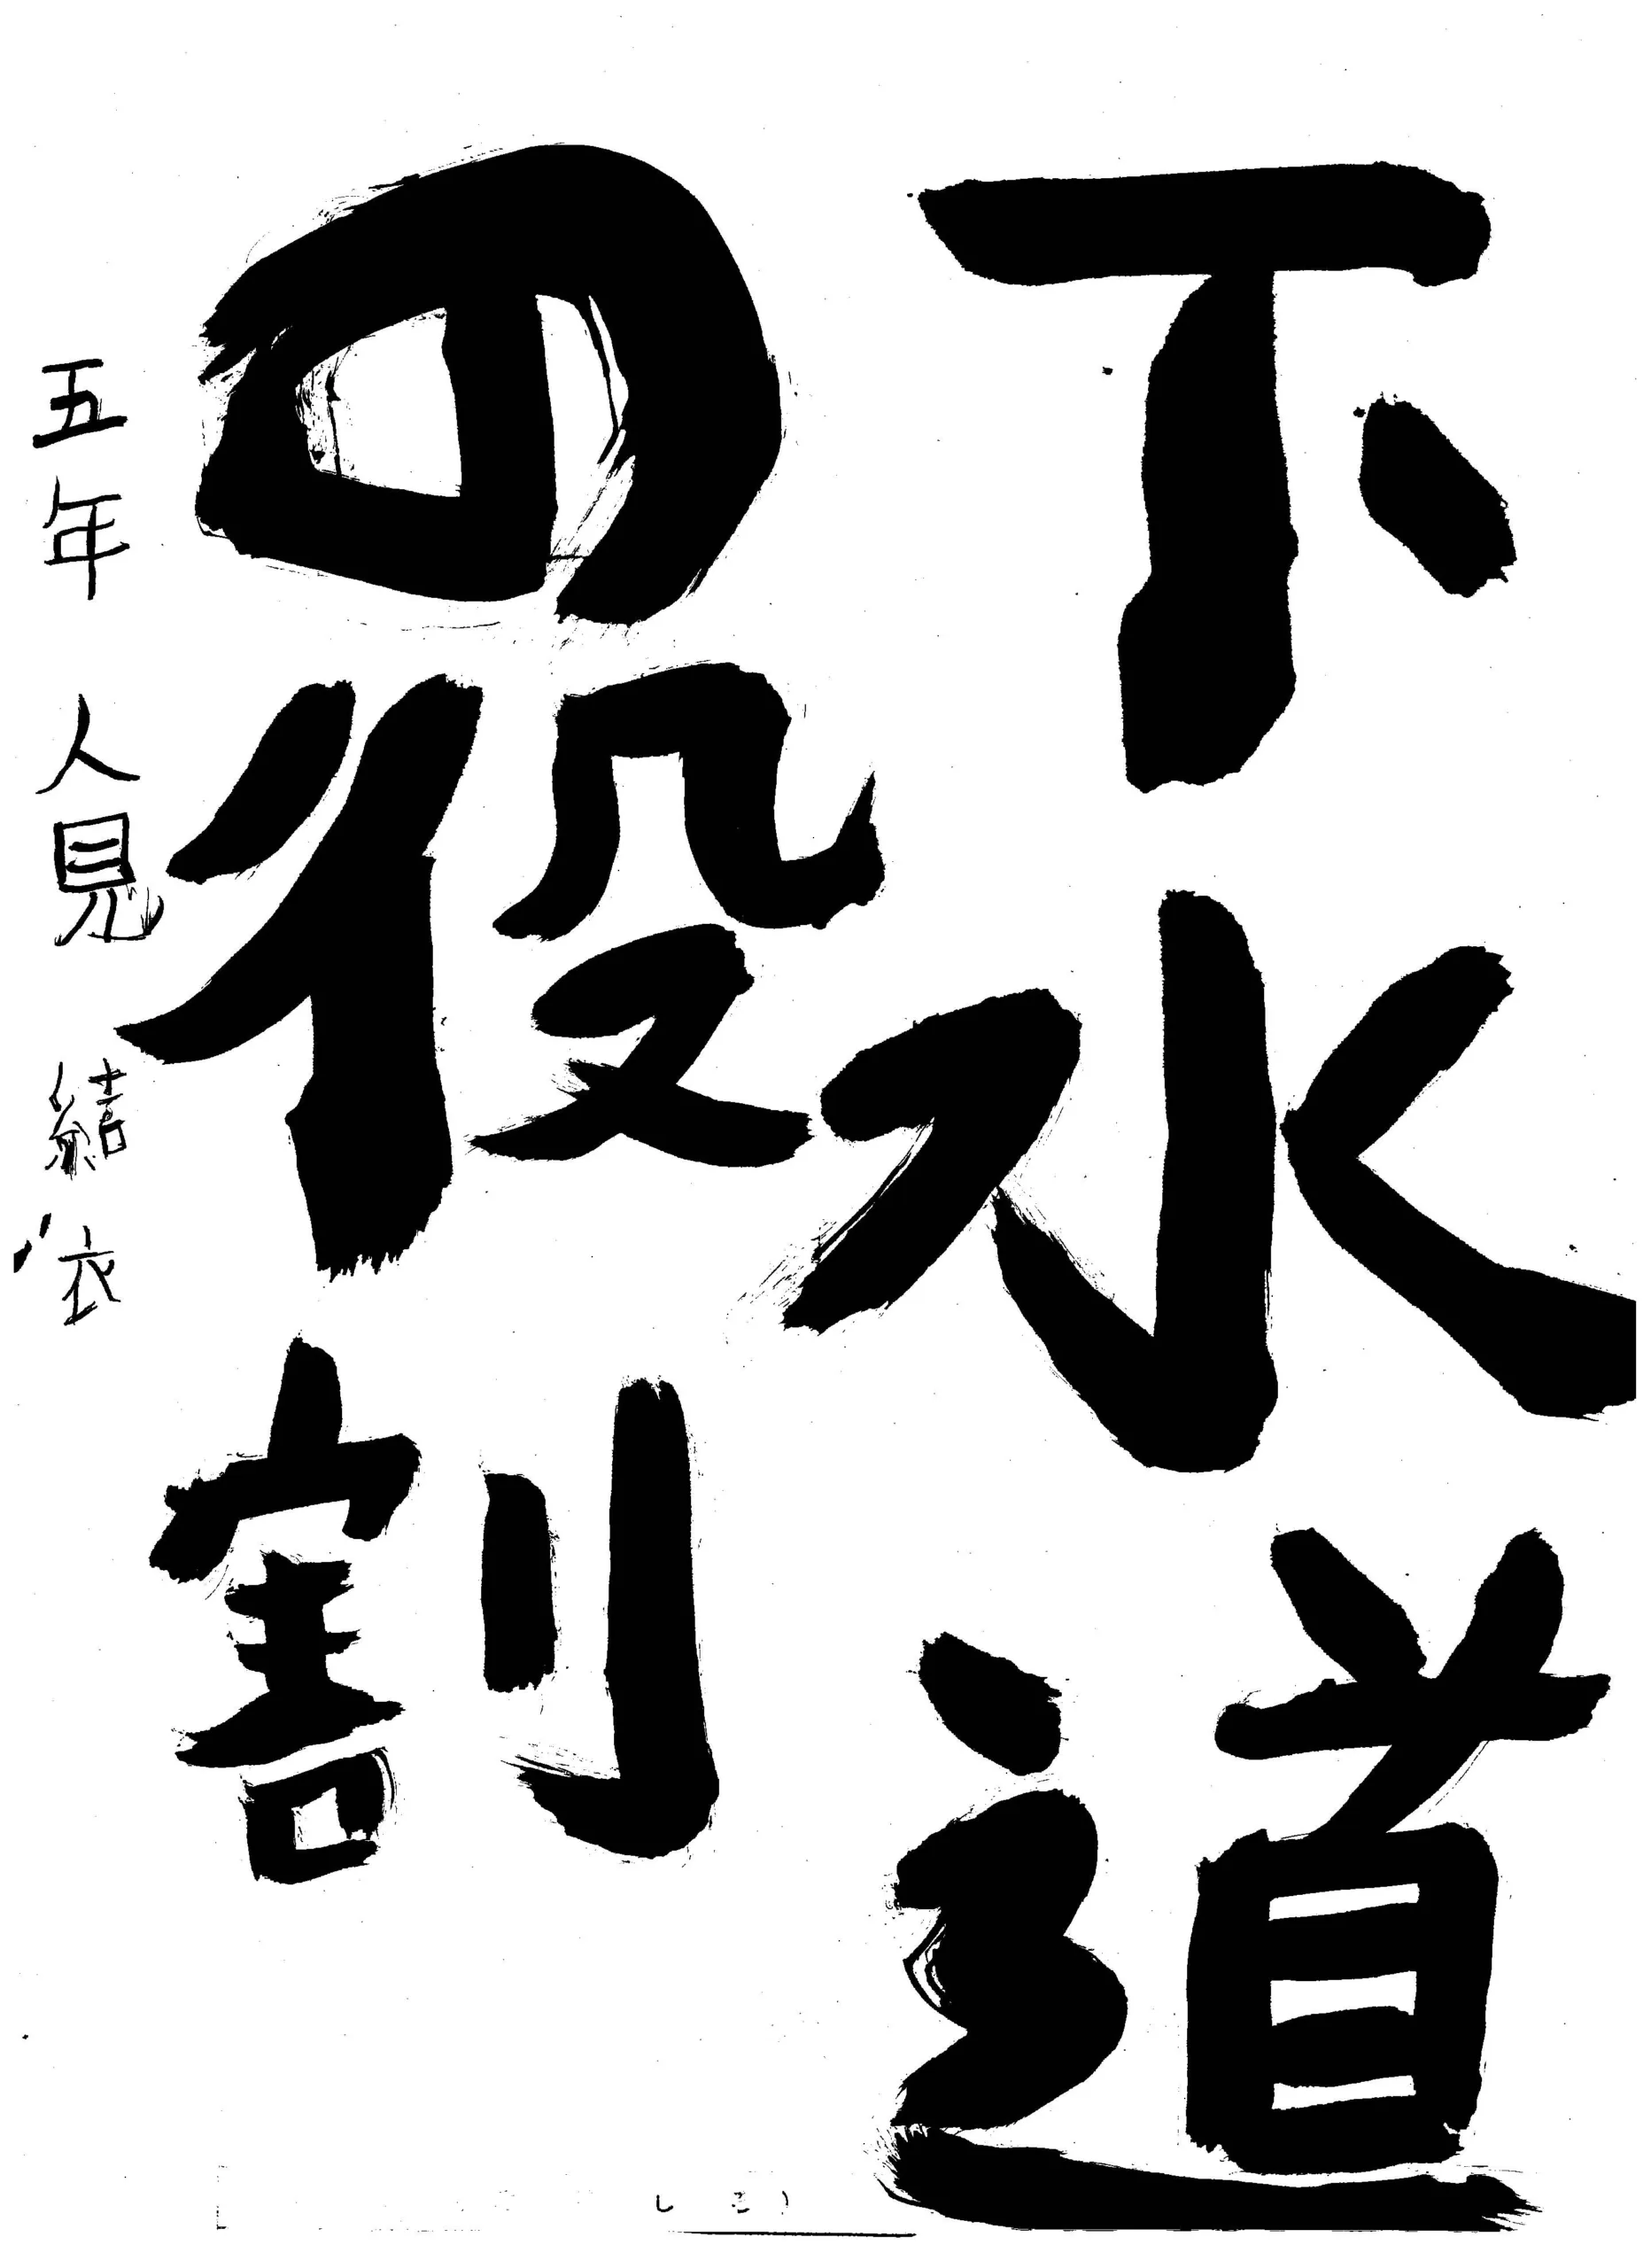 下水道
の役割
五年 人見 結衣